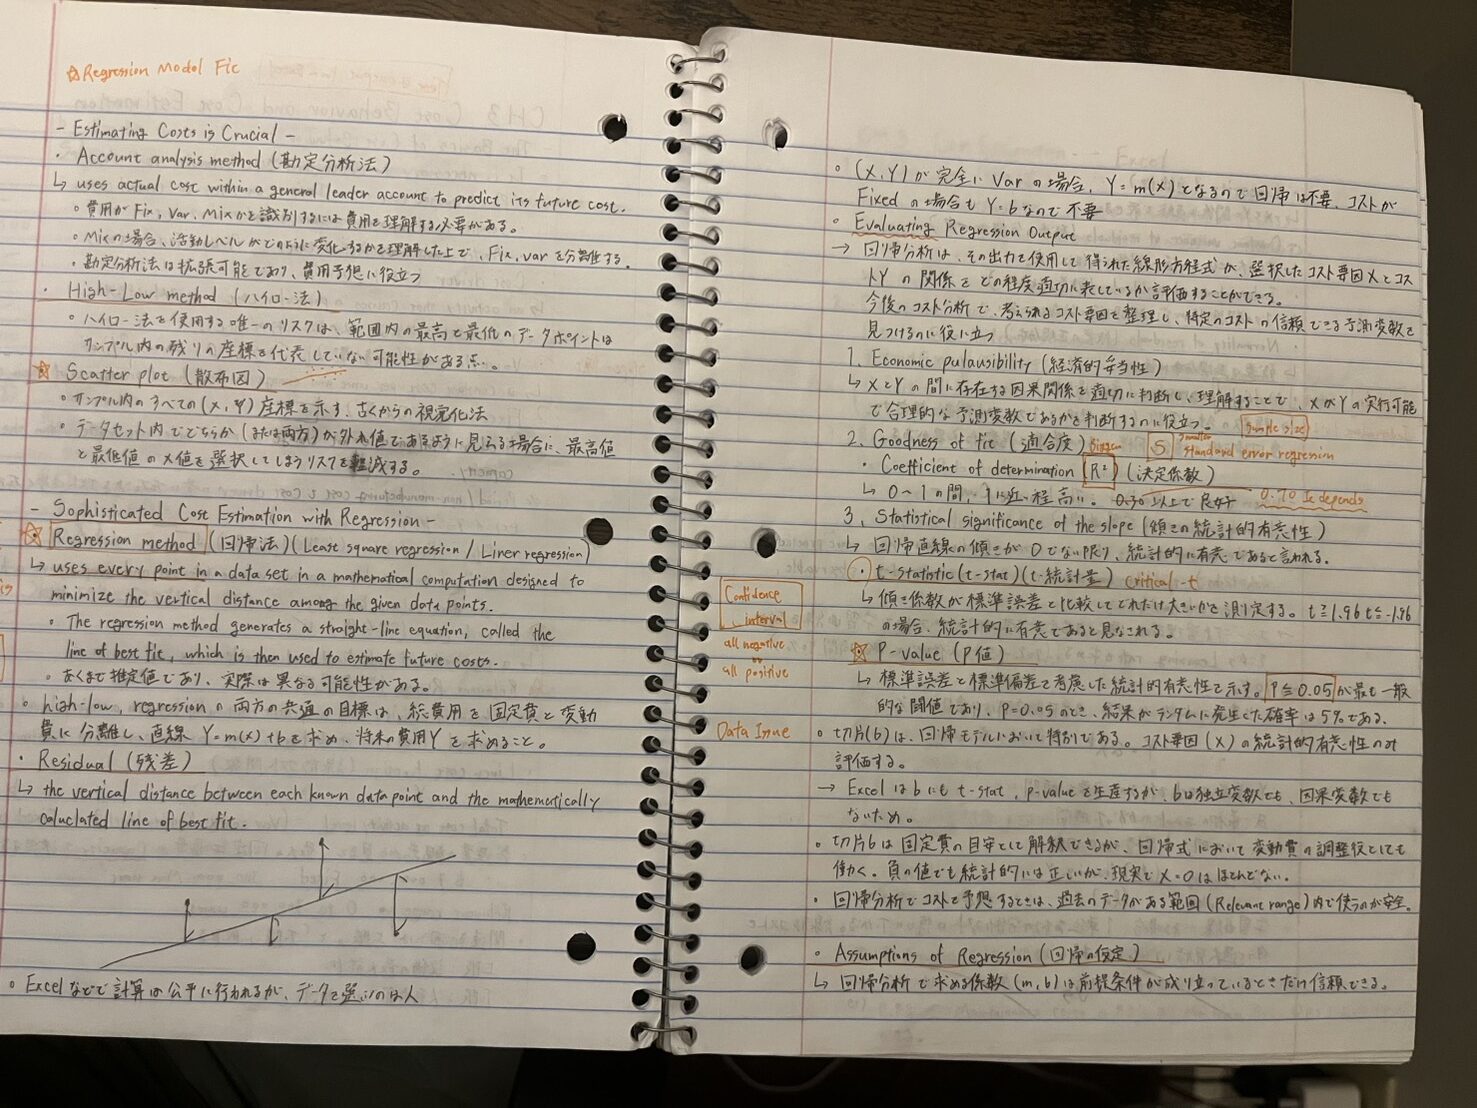 ☆Regression Model Fit
- Estimating Costs is Crucial -
・Account analysis method (勘定分析法)
↳ uses actual cost within a general leader account to predict its future cost.
・費用がFix, Var, Mixかを識別するには費用を理解する必要がある。
・Mixの場合、活動レベルがどのように変化するかを理解した上で、Fix, varを分離する。
・勘定分析法は拡張可能であり、費用予想に役立つ
・High-Low method (ハイロー法)
・ハイロー法を使用する唯一のリスクは、範囲内の最高と最低のデータポイントは
サンプル内の残りの座標を代表していない可能性がある点。
☆ Scatter plot (散布図)
・サンプル内のすべての(X, Y)座標を示す、古くからの視覚化法
・データセット内でどちらか(または両方)が外れ値であるように見える場合に、最高値
と最低値のX値を選択してしまうリスクを軽減する。
- Sophisticated Cost Estimation with Regression -
☆ Regression method (回帰法) (Least square regression / Liner regression)
↳ uses every point in a data set in a mathematical computation designed to
minimize the vertical distance among the given data points.
・The regression method generates a straight-line equation, called the
line of best fit, which is then used to estimate future costs.
・あくまで推定値であり、実際は異なる可能性がある。
○ high-low, regressionの両方の共通の目標は、総費用を固定費と変動
費に分離し、直線 Y=m(x)+bを求め、将来の費用Yを求めること。
・Residual (残差)
↳ the vertical distance between each known data point and the mathematically
caluclated line of best fit.
○ Excelなどで計算は公平に行われるが、データを選ぶのは人
○ (X, Y)が完全にVarの場合、Y=m(x)となるので回帰は不要、コストが
Fixedの場合もY=bなので不要
○ Evaluating Regression Output
→ 回帰分析は、その出力を使用して得られた線形方程式が、選択したコスト要因Xとコス
トYの関係をどの程度適切に表しているか評価することができる。
今後のコスト分析で、考えられるコスト要因を整理し、特定のコストの信頼できる予測変数を
見つけるのに役に立つ
1. Economic pulausibility (経済的妥当性)
↳ XとYの間に存在する因果関係を適切に判断し、理解することで、XがYの実行可能
で合理的な予測変数であるかを判断するのに役立つ。 Sample size
2. Goodness of fit (適合度) Bigger S smaller standard error regression
・Coefficient of determination R² (決定係数)
↳ 0~1の間、1に近い程高い。0.30以上で良好 0.70 Is depends
3. Statistical significance of the slope (傾きの統計的有意性)
↳ 回帰直線の傾きが0でない限り、統計的に有意であると言われる。
・t-statistic (t-stat) (t-統計量) critical-t
↳ 傾き係数が標準誤差と比較してどれだけ大きいかを測定する。t≧1.96 t≦-1.96
の場合、統計的に有意であると見なされる。
Confidence
interval
all negative
or
all positive
☆ P-value (P値)
↳ 標準誤差と標準偏差を考慮した統計的有意性を示す。P≦0.05が最も一般
的な閾値であり、P=0.05のとき、結果がランダムに発生した確率は5%である。
Data Issue
○ 切片(b)は、回帰モデルにおいて特別である。コスト要因(X)の統計的有意性のみ
評価する。
→ Excelはbにもt-stat, p-valueを生産するが、bは独立変数でも、因果変数でも
ないため。
○ 切片bは固定費の目安として解釈できるが、回帰式において変動費の調整役としても
働く。負の値でも統計的には正しいが、現実でX=0はほとんどない。
・回帰分析でコストを予想するときは、過去のデータがある範囲(Relevant range)内で使うのが安全。
○ Assumptions of Regression (回帰の仮定)
↳ 回帰分析で求める係数(m, b)は前提条件が成り立っているときだけ信頼できる。